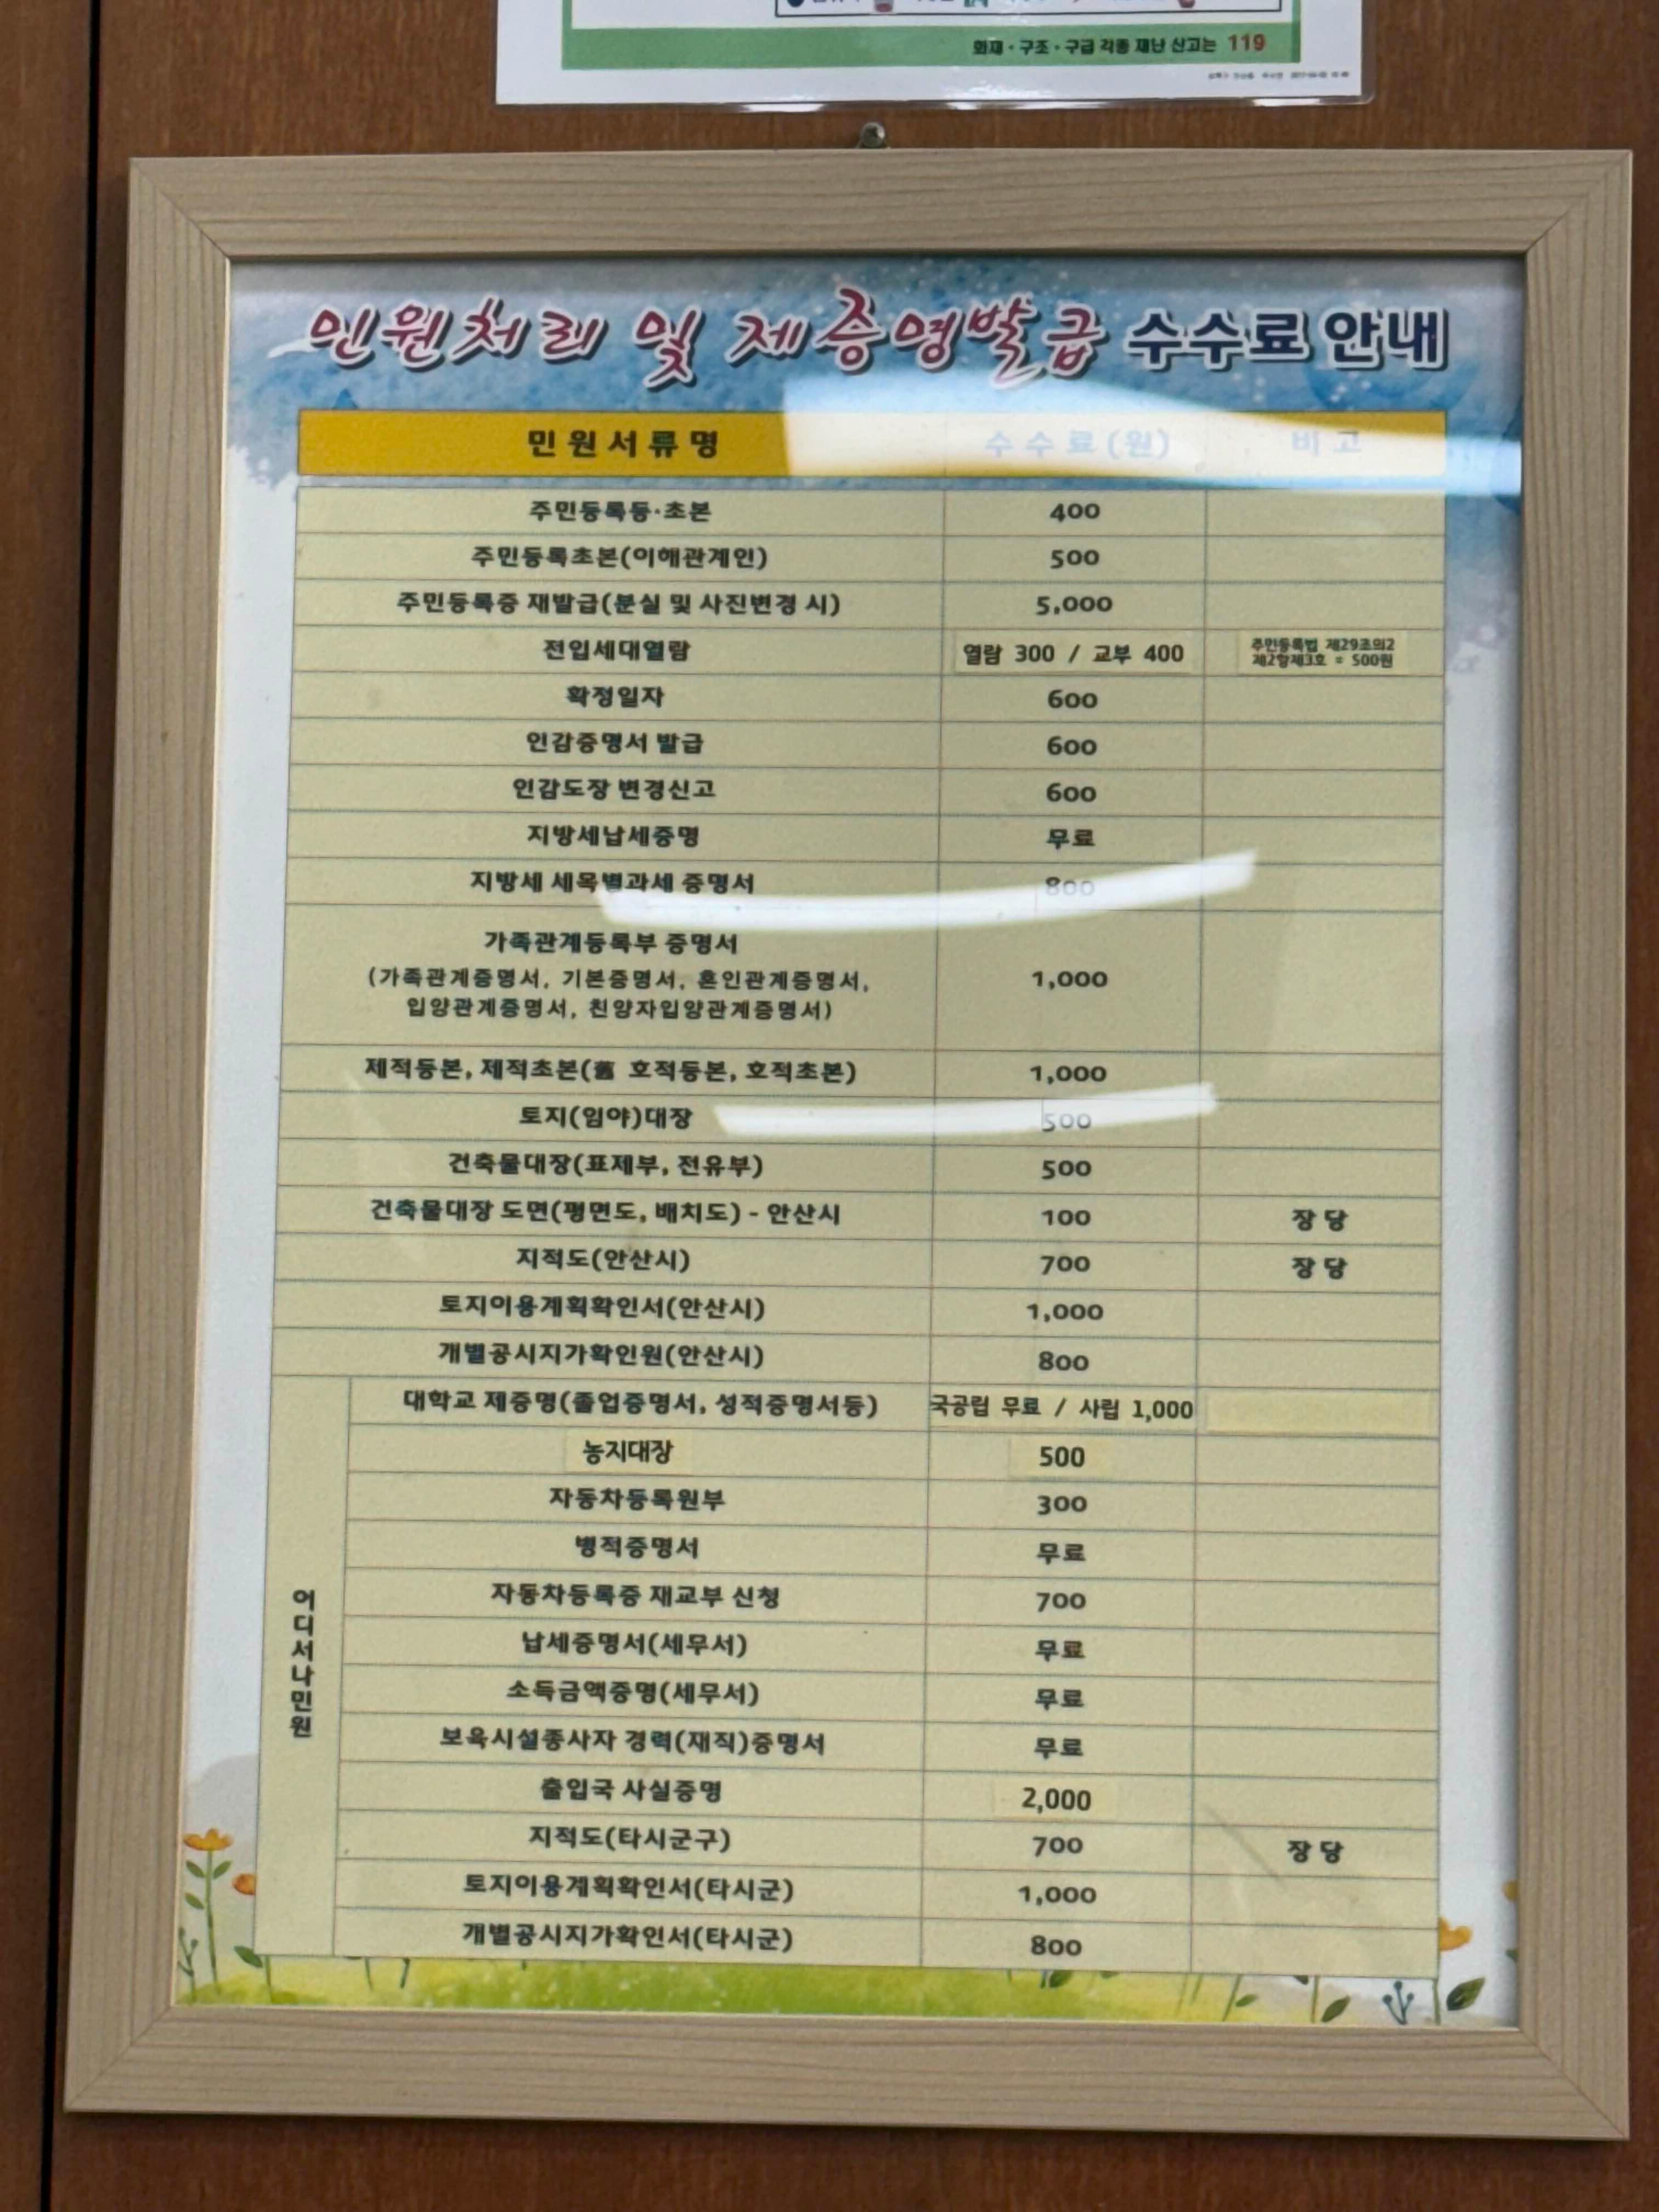 화재·구조·구급 각종 재난 신고는 119
민원처리 및 제증명발급 수수료 안내
민원서류명 수수료(원) 비고
주민등록등·초본 400
주민등록초본(이해관계인) 500
주민등록증 재발급(분실 및 사진변경 시) 5,000
전입세대열람 열람 300 / 교부 400 주민등록법 제29조의2
제2항제3호 = 500원
확정일자 600
인감증명서 발급 600
인감도장 변경신고 600
지방세납세증명 무료
지방세 세목별과세 증명서 800
가족관계등록부 증명서
(가족관계증명서, 기본증명서, 혼인관계증명서, 1,000
입양관계증명서, 친양자입양관계증명서)
제적등본, 제적초본(舊 호적등본, 호적초본) 1,000
토지(임야)대장 500
건축물대장(표제부, 전유부) 500
건축물대장 도면(평면도, 배치도) - 안산시 100 장당
지적도(안산시) 700 장당
토지이용계획확인서(안산시) 1,000
개별공시지가확인원(안산시) 800
어디서나민원
대학교 제증명(졸업증명서, 성적증명서등) 국공립 무료 / 사립 1,000
농지대장 500
자동차등록원부 300
병적증명서 무료
자동차등록증 재교부 신청 700
납세증명서(세무서) 무료
소득금액증명(세무서) 무료
보육시설종사자 경력(재직)증명서 무료
출입국 사실증명 2,000
지적도(타시군구) 700 장당
토지이용계획확인서(타시군) 1,000
개별공시지가확인서(타시군) 800